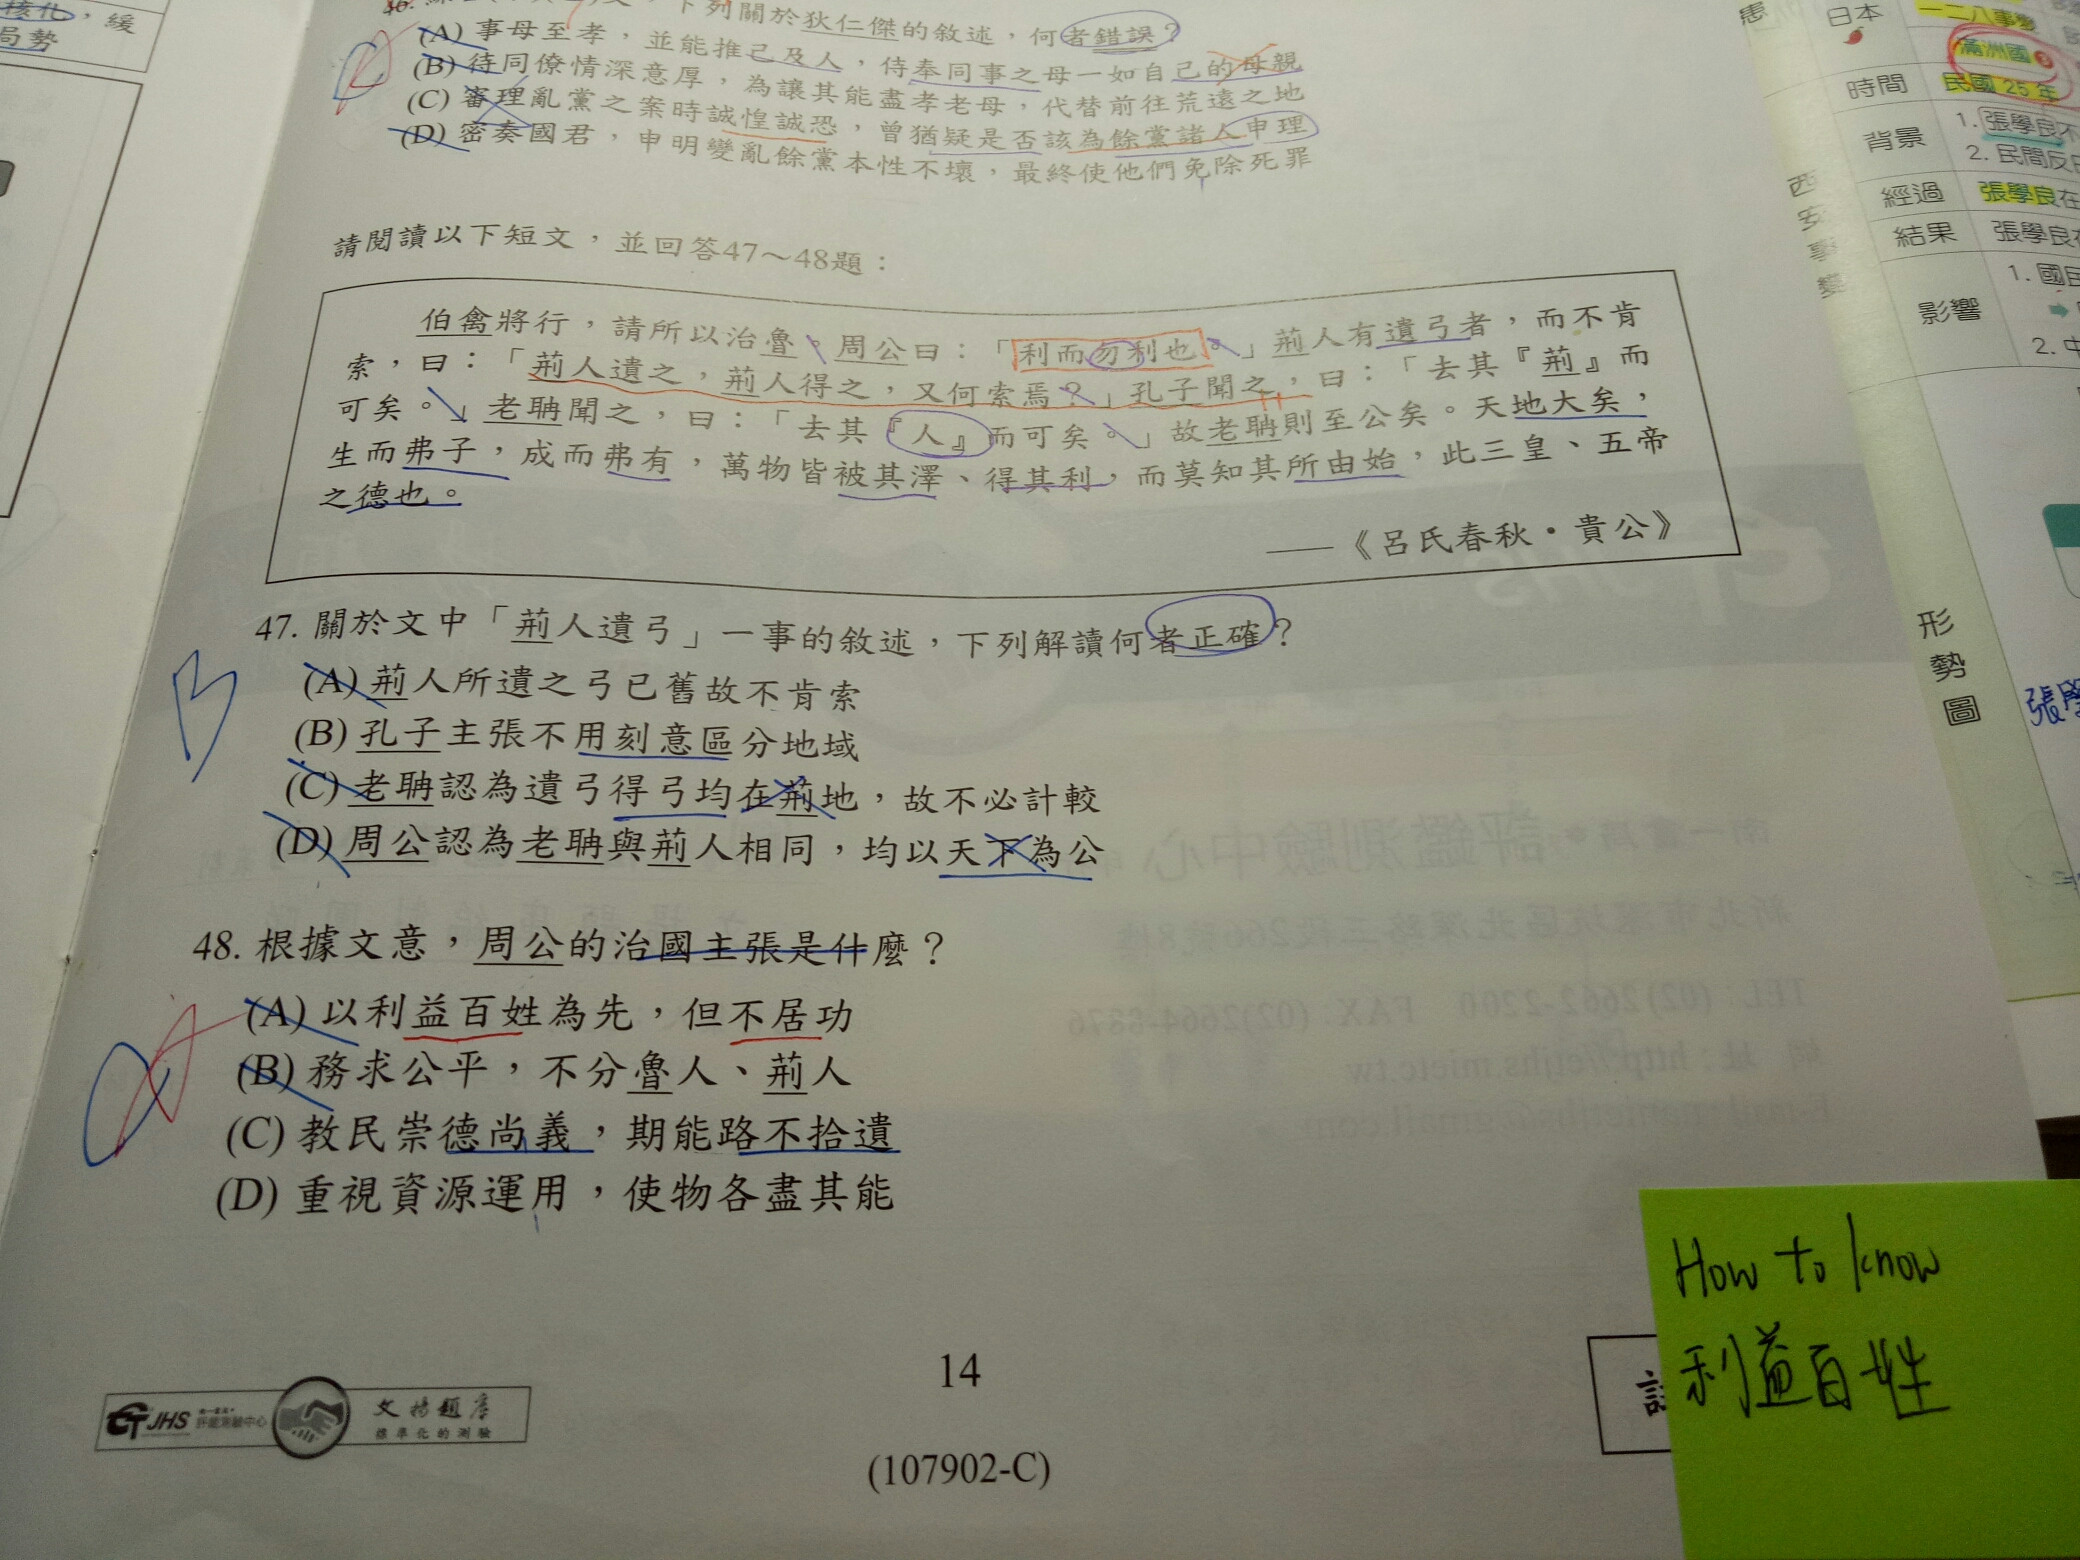 核化，緩
局勢
下列關於狄仁傑的敘述，何者錯誤？
(A) 事母至孝，並能推己及人，侍奉同事之母一如自己的母親
(B) 待同僚情深意厚，為讓其能盡孝老母，代替前往荒遠之地
(C) 審理亂黨之案時誠惶誠恐，曾猶疑是否該為餘黨諸人申理
(D) 密奏國君，申明變亂餘黨本性不壞，最終使他們免除死罪
請閱讀以下短文，並回答47～48題：
伯禽將行，請所以治魯。周公曰：「利而勿利也。」荊人有遺弓者，而不肯
索，曰：「荊人遺之，荊人得之，又何索焉？」孔子聞之，曰：「去其『荊』而
可矣。」老聃聞之，曰：「去其『人』而可矣。」故老聃則至公矣。天地大矣，
生而弗子，成而弗有，萬物皆被其澤、得其利，而莫知其所由始，此三皇、五帝
之德也。
——《呂氏春秋‧貴公》
47. 關於文中「荊人遺弓」一事的敘述，下列解讀何者正確？
B
(A) 荊人所遺之弓已舊故不肯索
(B) 孔子主張不用刻意區分地域
(C) 老聃認為遺弓得弓均在荊地，故不必計較
(D) 周公認為老聃與荊人相同，均以天下為公
48. 根據文意，周公的治國主張是什麼？
A
(A) 以利益百姓為先，但不居功
(B) 務求公平，不分魯人、荊人
(C) 教民崇德尚義，期能路不拾遺
(D) 重視資源運用，使物各盡其能
14
(107902-C)
JHS
評鑑測驗中心
文揚題庫
標準化的測驗
How to know
利益百姓
日本
一二八事變
滿洲國
時間
民國 25 年
背景
1. 張學良不
2. 民間反日
西安事變
經過
張學良在
結果
張學良在
影響
1. 國民
2. 中
形勢圖
張學